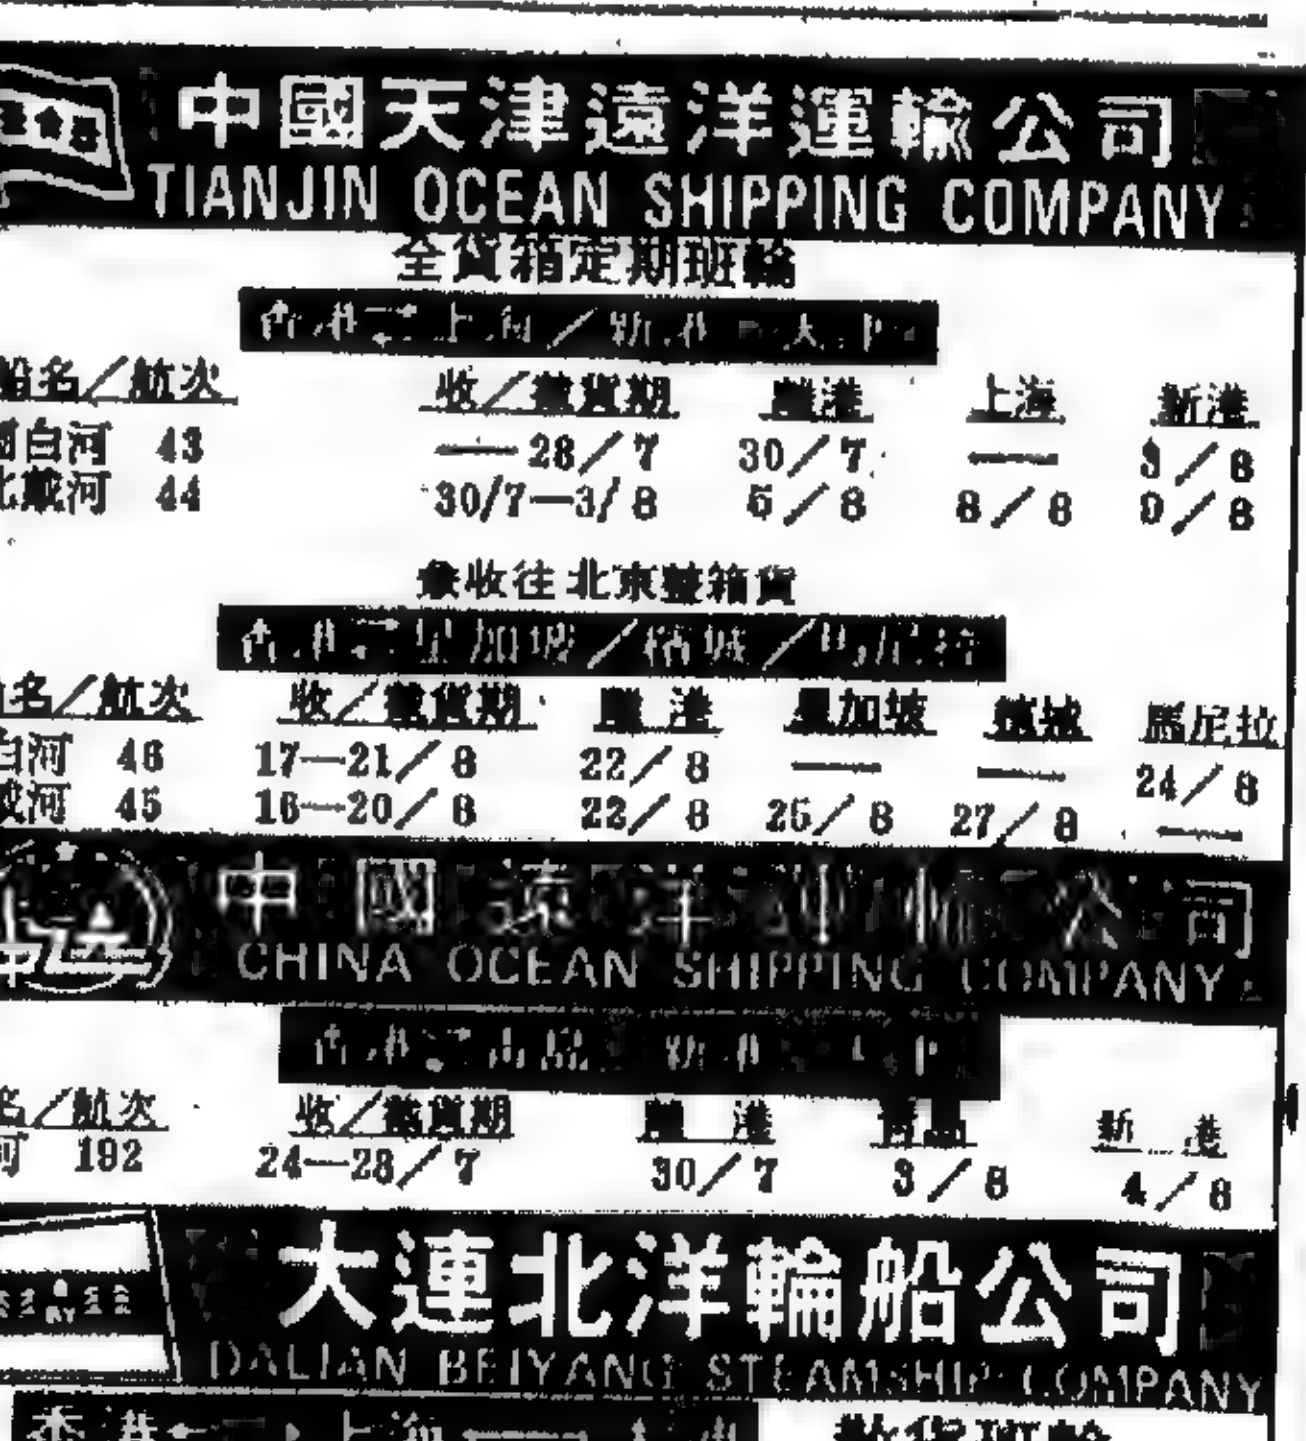 中國天津遠洋運輸公司
TIANJIN OCEAN SHIPPING COMPANY
全貨箱定期班輪
香港 上海／新港
船名／航次 收／截貨期 離港 上海 新港
白河 43 — 28／7 30／7 — 3／8
北戴河 44 30/7—3/8 5／8 8／8 9／8
兼收往北京整箱貨
香港 星加坡／檳城／馬尼拉
名／航次 收／截貨期 離港 星加坡 檳城 馬尼拉
白河 46 17—21／8 22／8 — — 24／8
戴河 45 16—20／8 22／8 25／8 27／8 —
中國遠洋運輸公司
CHINA OCEAN SHIPPING COMPANY
香港 青島 新港
名／航次 收／截貨期 離港 青島 新港
河 192 24—28／7 30／7 3／8 4／8
大連北洋輪船公司
DALIAN BEIYANG STEAMSHIP COMPANY
香港 上海
散貨班輪